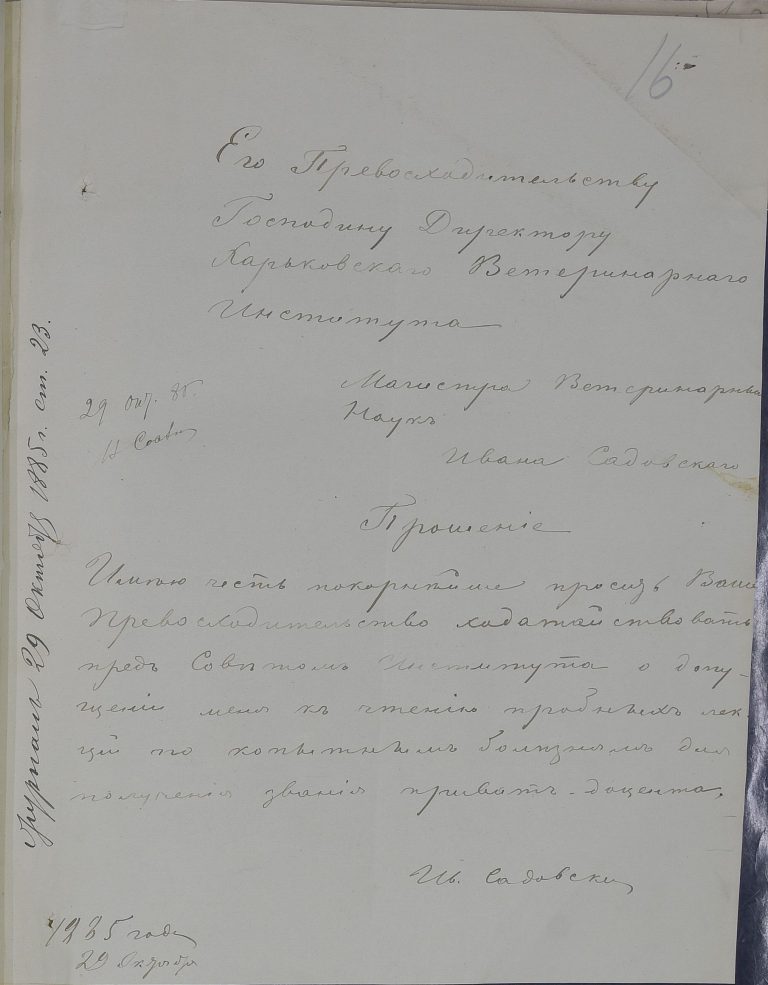 16
Его Превосходительству
Господину Директору
Харьковскаго Ветеринарнаго
Института
Магистра Ветеринарных
Наукъ
Ивана Садовскаго
29 Окт. 85.
В Советъ
Прошеніе
Имѣю честь покорнѣйше просить Ваше
Превосходительство ходатайствовать
предъ Совѣтомъ Института о допу-
щеніи меня къ чтенію пробныхъ лек-
цій по копытнымъ болѣзнямъ для
полученія званія приватъ-доцента.
Ив. Садовскій
1885 года
29 Октября
Журналъ 29 Октября 1885 г. ст. 23.